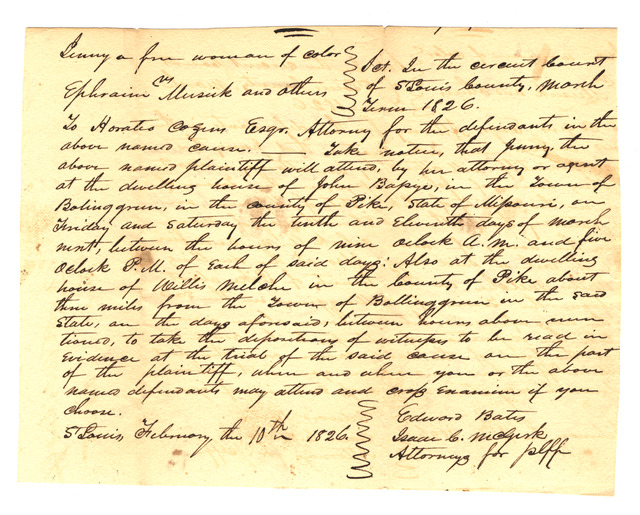 Jenny a free woman of color
vs
Ephraim Musick and others
Sct. In the circuit Court
of St Louis County, March
Term 1826.
To Horatio Cozens Esqr. Attorney for the defendants in the
above named cause. — Take notice, that Jenny, the
above named plaintiff will attend, by her attorney or agent
at the dwelling house of John in the Town of
Bolinggreen, in the county of Pike, State of Missouri, on
Friday and Saturday the tenth and Eleventh days of March
next, between the hours of nine Oclock A.M. and five
Oclock P.M. of Each of said days: Also at the dwelling
house of Willis in the County of Pike about
three miles from the Town of Bollinggreen in the said
State, on the days aforesaid, between hours above men
tioned, to take the depositions of witnesses to be read in
Evidence at the trial of the said cause on the part
of the plaintiff, when and where you or the above
named defendants may attend and cross Examine if you
choose.
St Louis, February, the 10th 1826.
Edward Bates
Isaac C. McGirk
Attorneys for plff